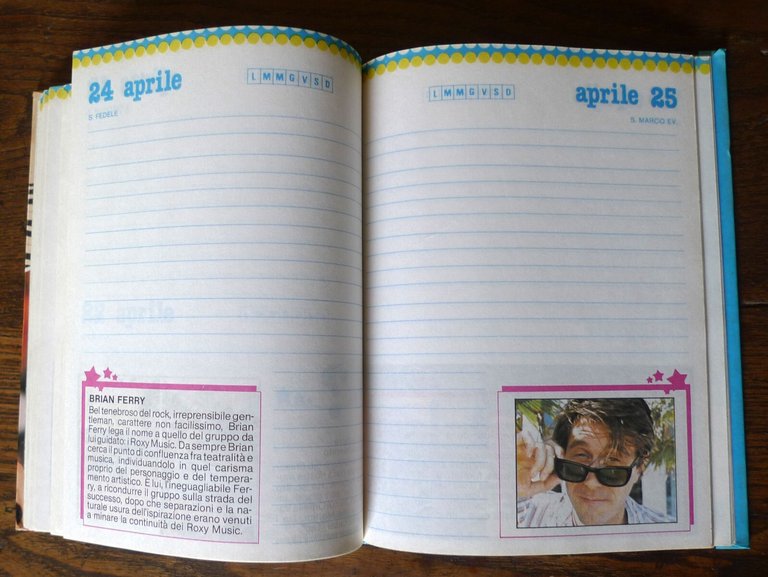 24 aprile
L M M G V S D
S. FEDELE
BRIAN FERRY
Bel tenebroso del rock, irreprensibile gen-
tleman, carattere non facilissimo, Brian
Ferry lega il nome a quello del gruppo da
lui guidato: i Roxy Music. Da sempre Brian
cerca il punto di confluenza fra teatralità e
musica, individuandolo in quel carisma
proprio del personaggio e del tempera-
mento artistico. È lui, l'ineguagliabile Fer-
ry, a ricondurre il gruppo sulla strada del
successo, dopo che separazioni e la na-
turale usura dell'ispirazione erano venuti
a minare la continuità dei Roxy Music.
L M M G V S D
aprile 25
S. MARCO EV.